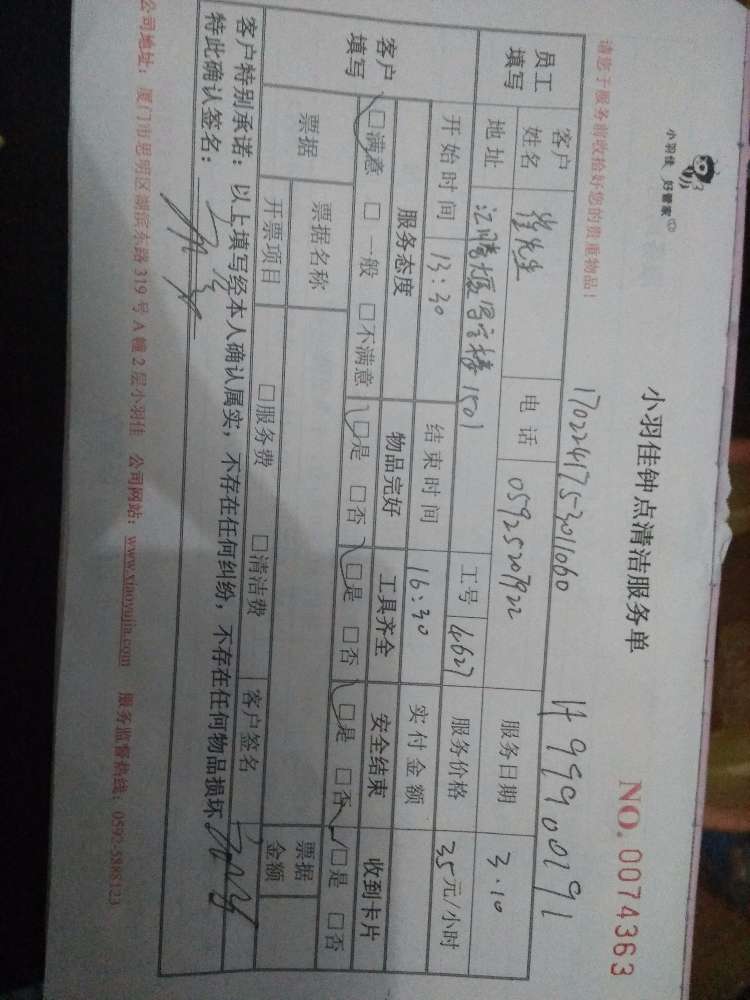 小羽佳 好管家
小羽佳钟点清洁服务单
NO. 0074363
请您于服务前收拾好您的贵重物品!
1702241753011060
员工填写
客户姓名
徐先生
电话
05925207922
服务日期
3.10
地址
汇腾大厦写字楼1501
工号
4627
服务价格
35元/小时
开始时间
13:30
结束时间
16:30
实付金额
客户填写
服务态度
物品完好
工具齐全
安全结束
收到卡片
□满意 □一般 □不满意
□是 □否
□是 □否
□是 □否
□是 □否
票据
票据名称
票据金额
开票项目
□服务费 □清洁费
客户签名
客户特别承诺:以上填写经本人确认属实,不存在任何纠纷,不存在任何物品损坏
特此确认签名:
公司地址:厦门市思明区湖滨东路319号A幢2层小羽佳 公司网站:www.xiaoyujia.com 服务监督热线:0592-5885123